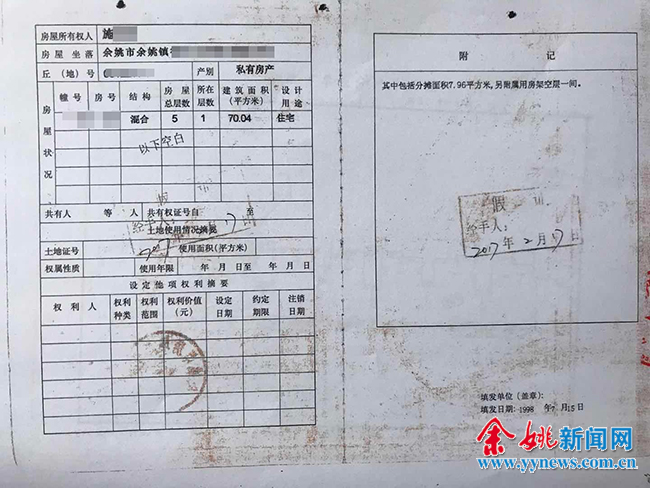 房屋所有权人 施
房屋坐落 余姚市余姚镇
丘(地)号 产别 私有房产
房屋状况
幢号 房号 结构 房屋总层数 所在层数 建筑面积(平方米) 设计用途
混合 5 1 70.04 住宅
以下空白
共有人 等 人 共有权证号自 至
土地使用情况摘要
土地证号 使用面积(平方米)
权属性质 使用年限 年 月 日至 年 月 日
设定他项权利摘要
权利人 权利种类 权利范围 权利价值(元) 设定日期 约定期限 注销日期
附 记
其中包括分摊面积7.96平方米,另附属用房架空层一间。
假
经手人:
2017年2月17日
填发单位(盖章):
填发日期:1998 年7月15日
余姚新闻网
www.yynews.com.cn